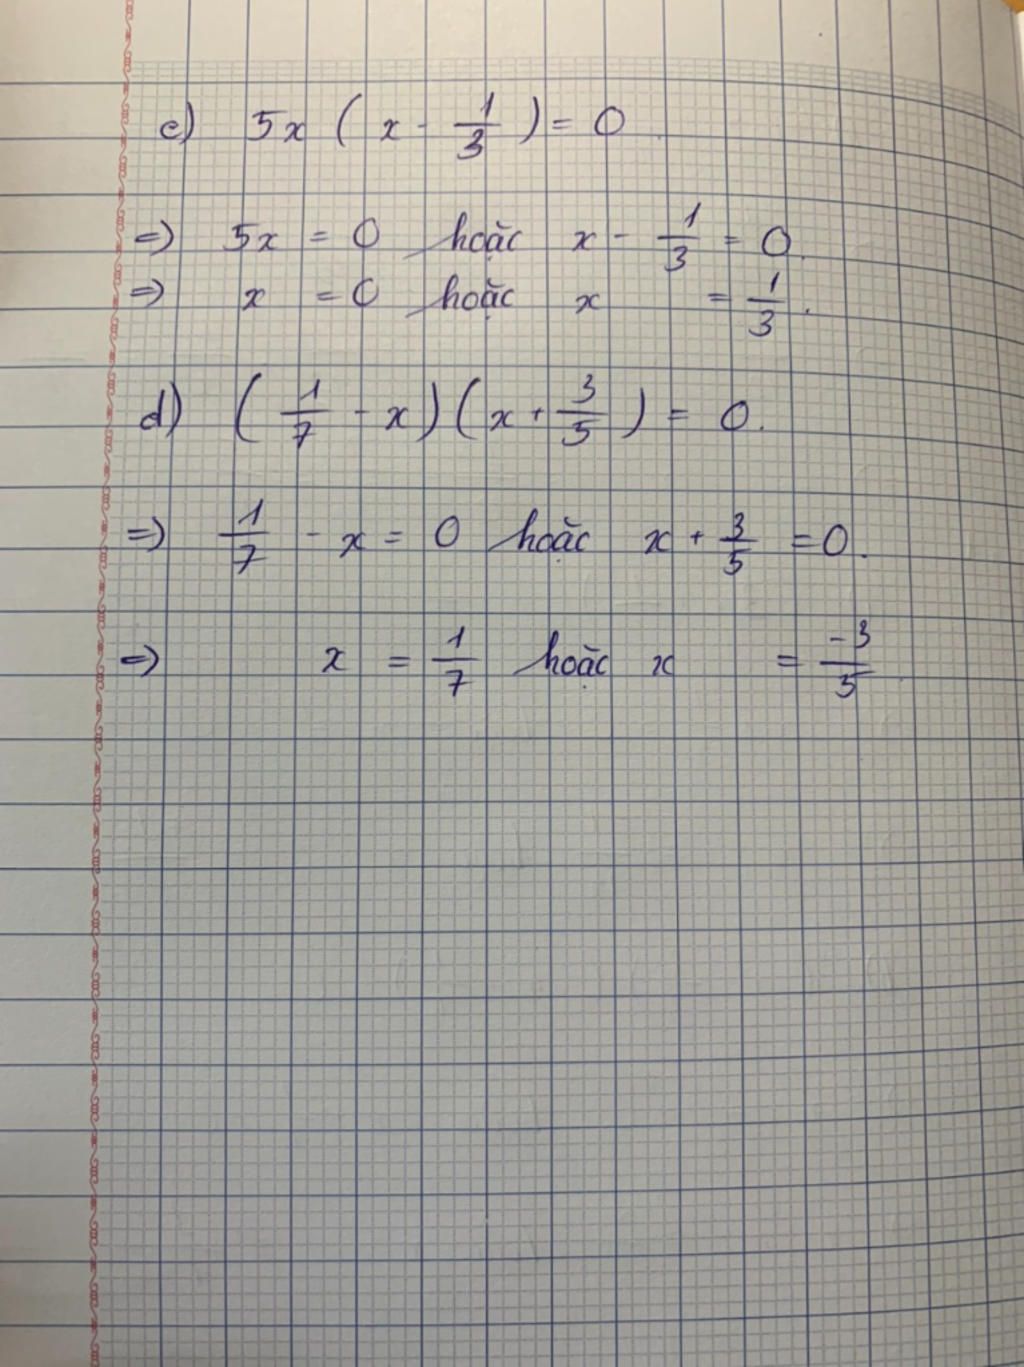 c) 5x ( x - 1/3 ) = 0
=> 5x = 0 hoặc x - 1/3 = 0.
=> x = 0 hoặc x = 1/3.
d) ( 1/7 - x ) ( x + 3/5 ) = 0.
=> 1/7 - x = 0 hoặc x + 3/5 = 0.
=> x = 1/7 hoặc x = -3/5